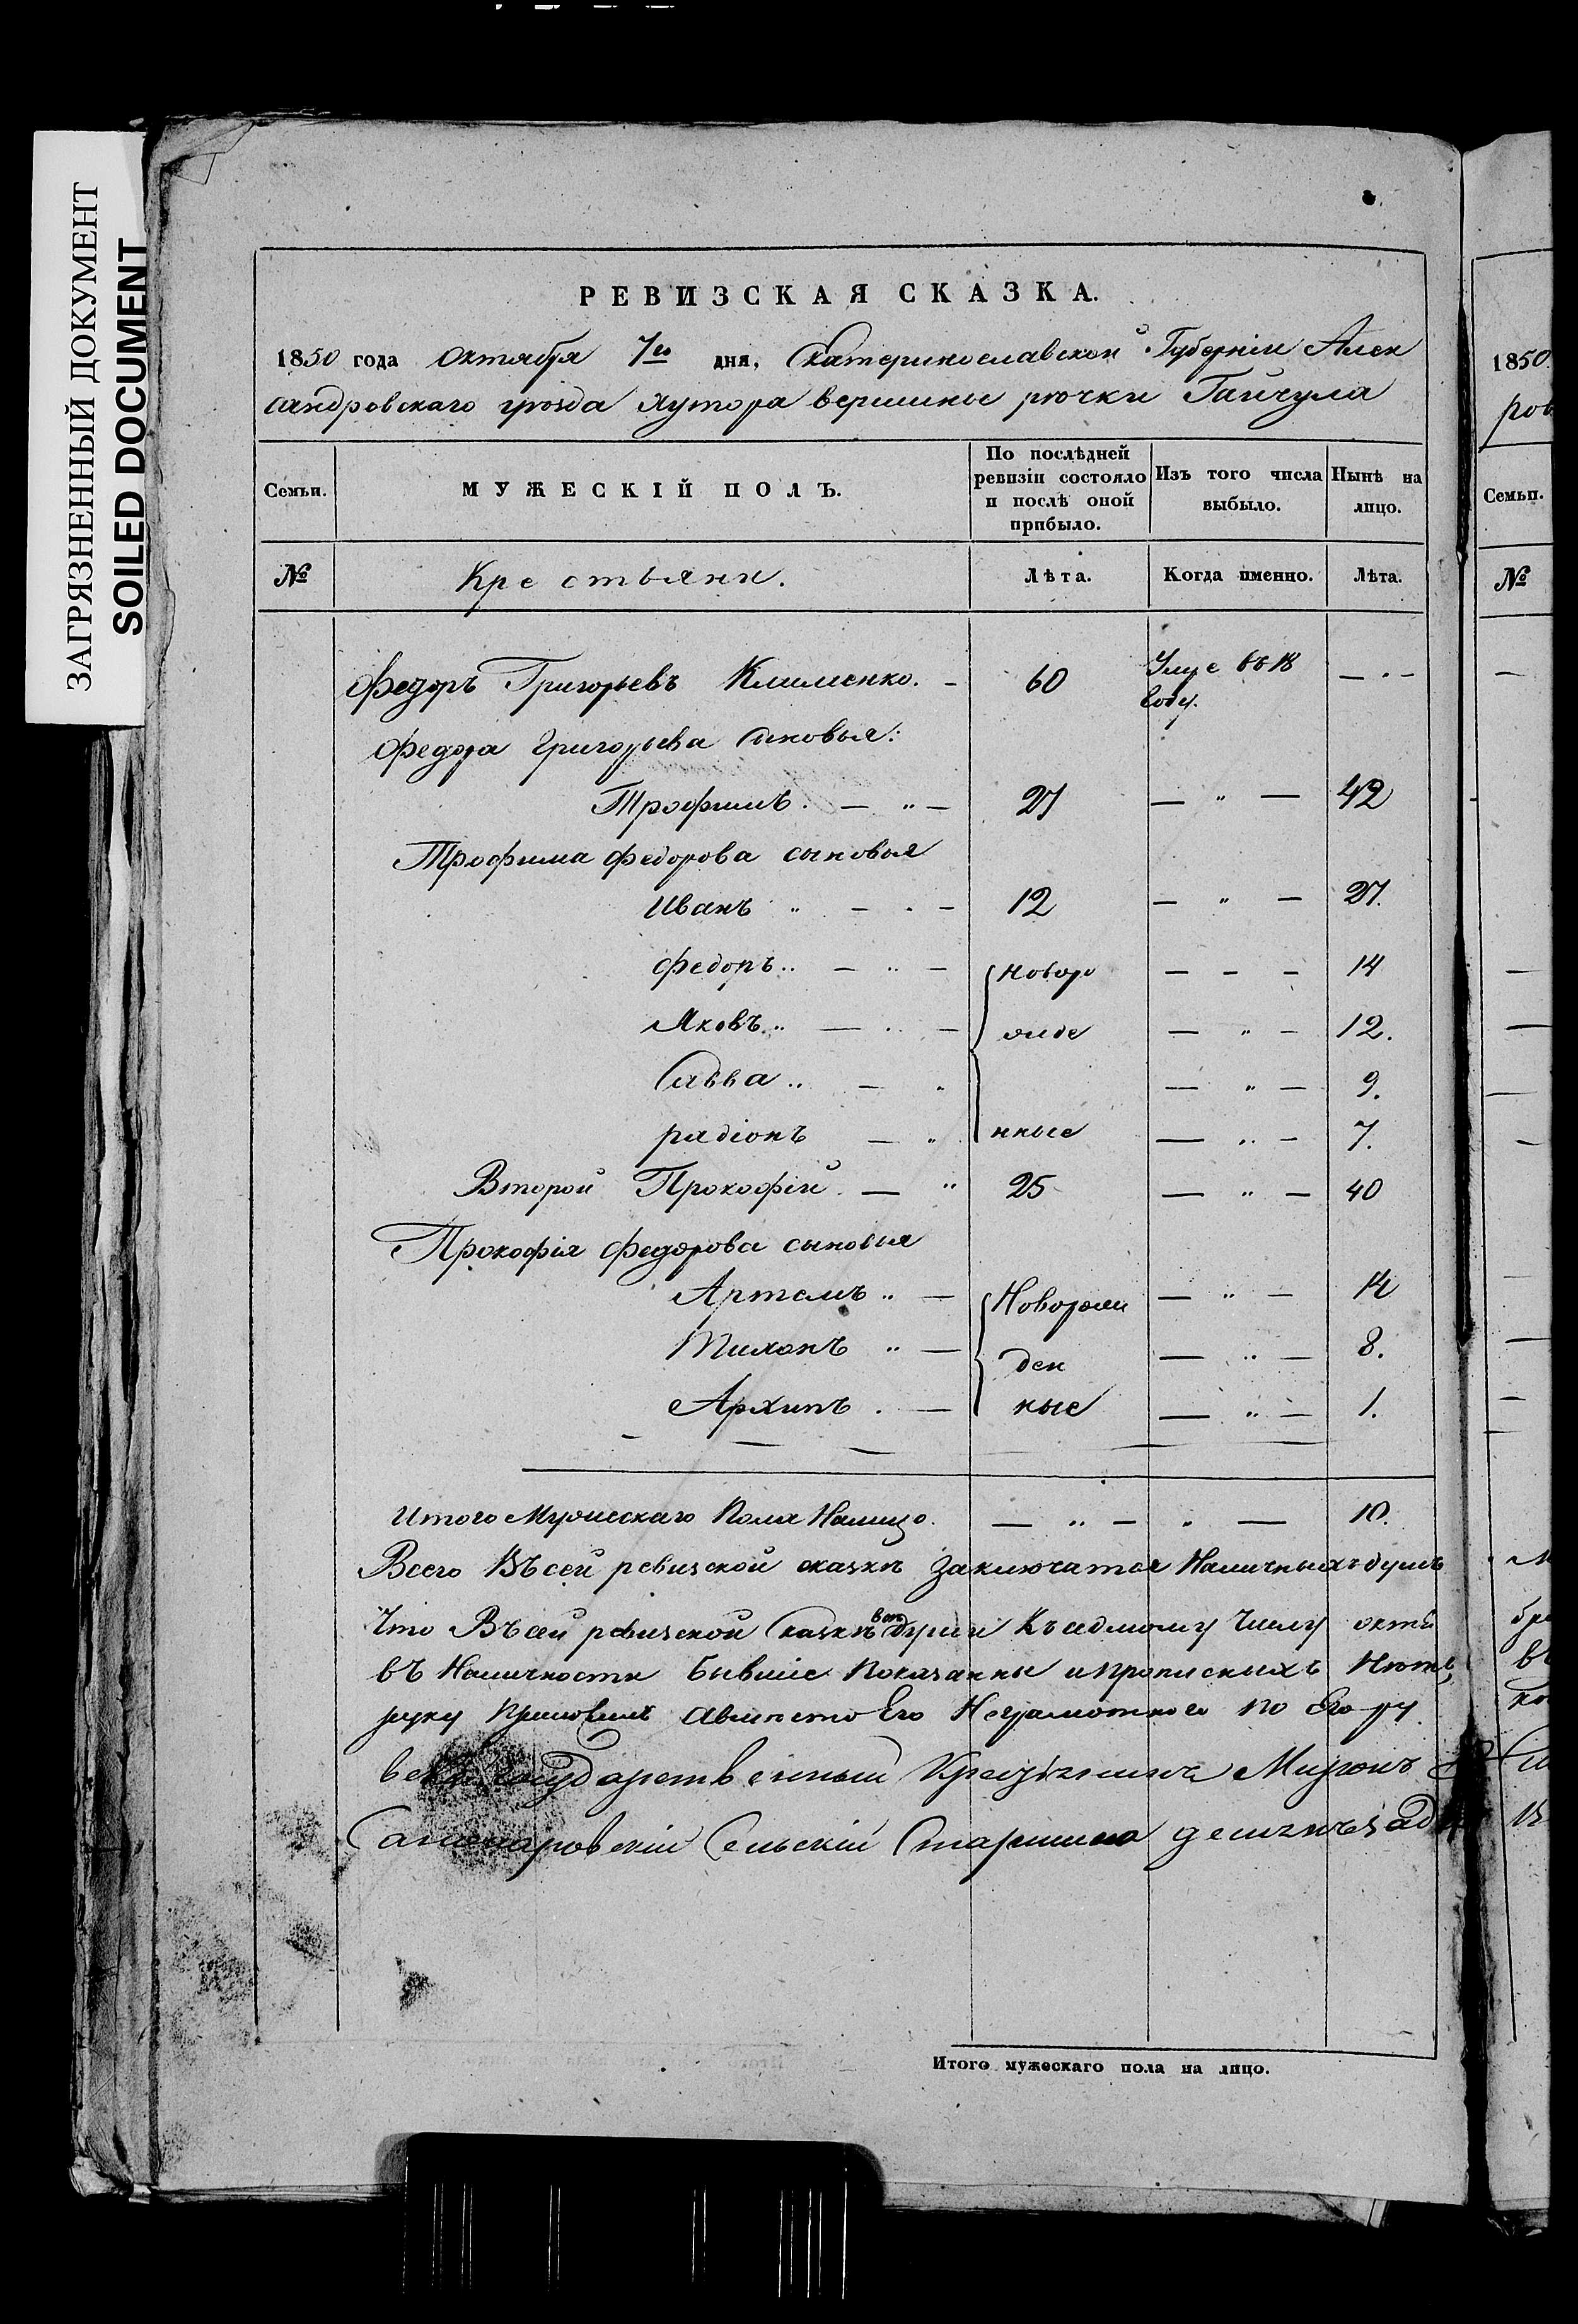 ЗАГРЯЗНЕННЫЙ ДОКУМЕНТ
SOILED DOCUMENT
РЕВИЗСКАЯ СКАЗКА.
1850 года Октября 7го дня, Екатеринославской Губерніи Алек
сандровскаго уѣзда хутора вершины рѣчки Гайчула
Семьи. МУЖЕСКІЙ ПОЛЪ. По послѣдней ревизіи состояло и послѣ оной прибыло. Изъ того числа выбыло. Нынѣ на лицо.
№ Крестьяни. Лѣта. Когда именно. Лѣта.
Федоръ Григорьевъ Клименко. - 60 въ 18 году. — . -
Федора Григорьева сыновья:
Трофимъ. — „ — 27 — „ — 42
Трофима Федорова сыновья
Иванъ „ — . — 12 — „ — 27.
Федоръ.. — .. — новоро — - — 14
Яковъ.. — .. — жде — „ — 12.
Савва.. — „ — „ — 9.
радіонъ — „ нные — „ — 7.
Второй Прокофій. — „ 25 — „ — 40
Прокофія Федорова сыновья
Артемъ „ — Новорож — „ — 14
Тихонъ „ — ден — „ — 8.
Архипъ . — ные — „ — 1.
Итого Мужескаго Пола Налицо. — „ — „ — 10.
Всего Въ сей ревизской сказкѣ Заключатся Наличныхъ душъ
Что Въ сей ревизской Сказкѣ всѣ души Къ седмому Числу октя
въ Наличности Бывшіе Показанны и прописныхъ Нютъ,
руку Приложилъ Авмѣсто Его Неграмотного по Его ру
государственный Миронъ
Сельскій Старшина
Итого мужескаго пола на лицо.
1850
ров
Семьи.
№